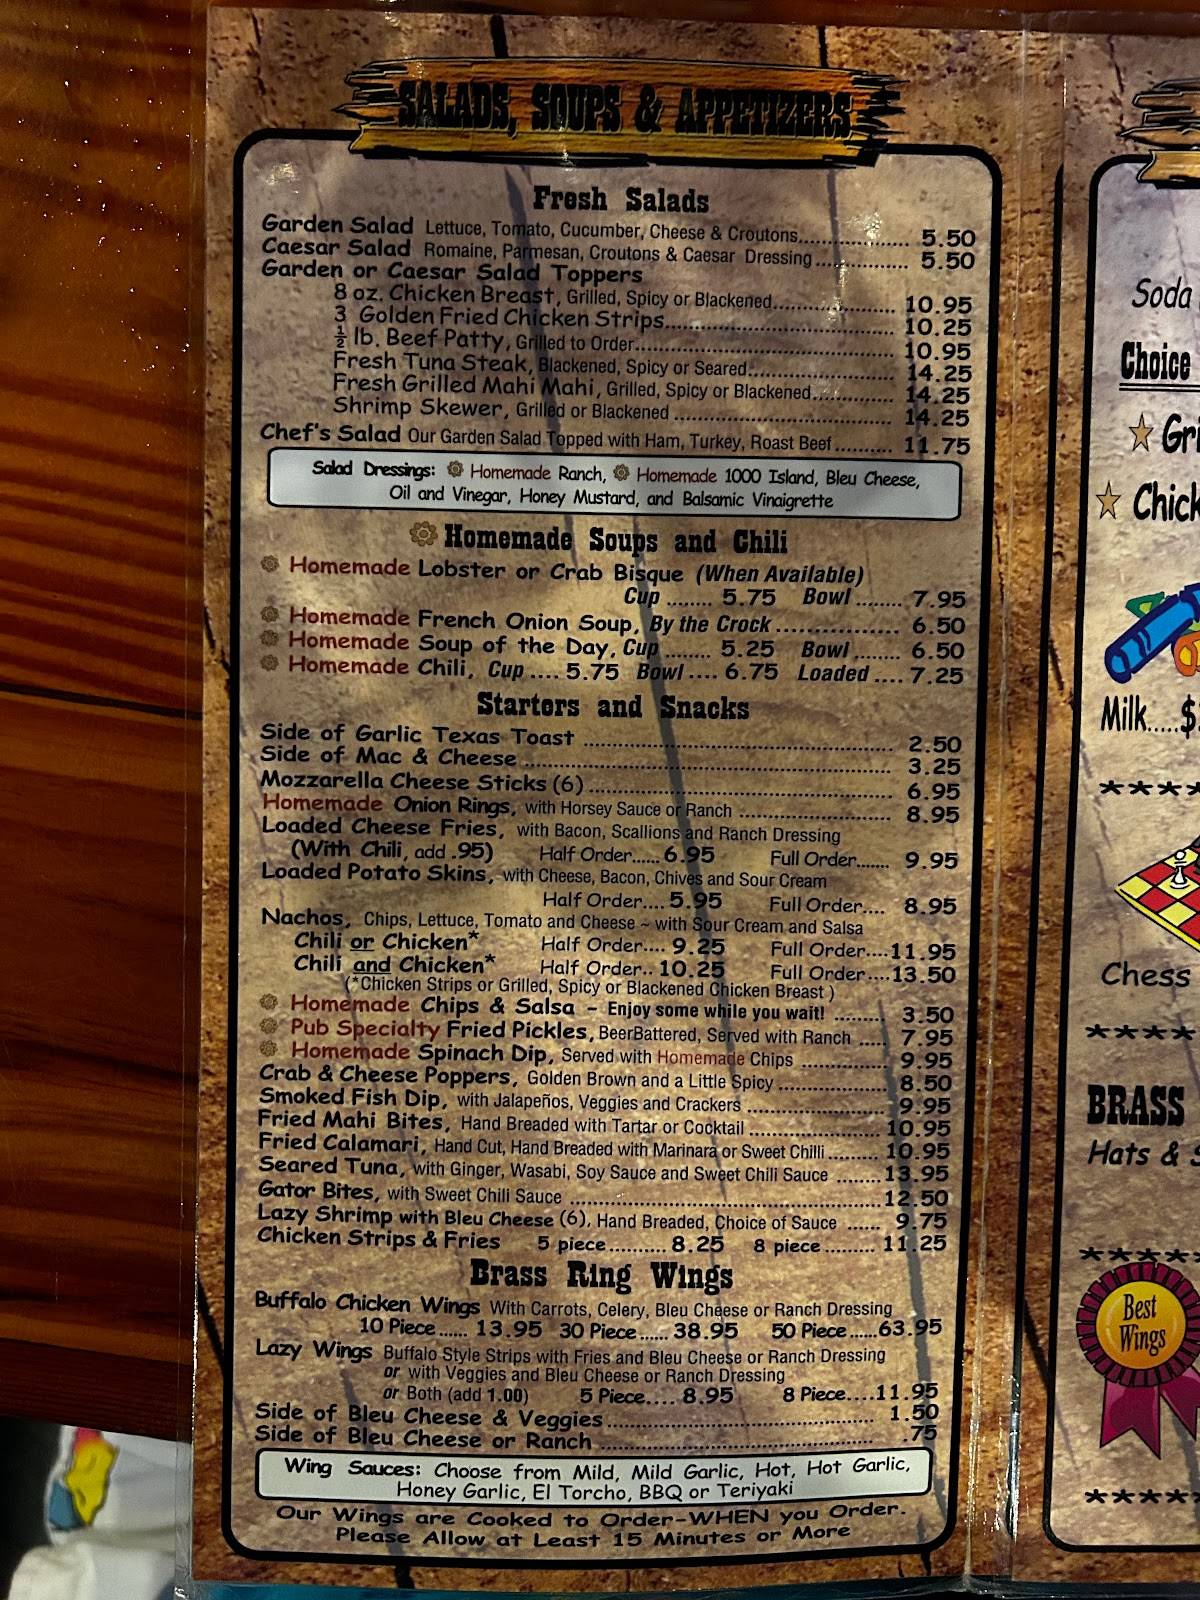 SALADS, SOUPS & APPETIZERS
Fresh Salads
Garden Salad Lettuce, Tomato, Cucumber, Cheese & Croutons.................. 5.50
Caesar Salad Romaine, Parmesan, Croutons & Caesar Dressing............... 5.50
Garden or Caesar Salad Toppers
8 oz. Chicken Breast, Grilled, Spicy or Blackened.................... 10.95
3 Golden Fried Chicken Strips...................................... 10.25
½ lb. Beef Patty, Grilled to Order........................................... 10.95
Fresh Tuna Steak, Blackened, Spicy or Seared........................ 14.25
Fresh Grilled Mahi Mahi, Grilled, Spicy or Blackened............. 14.25
Shrimp Skewer, Grilled or Blackened .................................... 14.25
Chef's Salad Our Garden Salad Topped with Ham, Turkey, Roast Beef.......... 11.75
Salad Dressings: Homemade Ranch, Homemade 1000 Island, Bleu Cheese,
Oil and Vinegar, Honey Mustard, and Balsamic Vinaigrette
Homemade Soups and Chili
Homemade Lobster or Crab Bisque (When Available)
Cup ........ 5.75 Bowl ........ 7.95
Homemade French Onion Soup, By the Crock ................ 6.50
Homemade Soup of the Day, Cup ........ 5.25 Bowl ........ 6.50
Homemade Chili, Cup .... 5.75 Bowl .... 6.75 Loaded .... 7.25
Starters and Snacks
Side of Garlic Texas Toast .................................................... 2.50
Side of Mac & Cheese ............................................................ 3.25
Mozzarella Cheese Sticks (6) .................................................. 6.95
Homemade Onion Rings, with Horsey Sauce or Ranch ......................... 8.95
Loaded Cheese Fries, with Bacon, Scallions and Ranch Dressing
(With Chili, add .95) Half Order...... 6.95 Full Order....... 9.95
Loaded Potato Skins, with Cheese, Bacon, Chives and Sour Cream
Half Order.... 5.95 Full Order.... 8.95
Nachos, Chips, Lettuce, Tomato and Cheese ~ with Sour Cream and Salsa
Chili or Chicken* Half Order.... 9.25 Full Order....11.95
Chili and Chicken* Half Order.. 10.25 Full Order....13.50
(*Chicken Strips or Grilled, Spicy or Blackened Chicken Breast )
Homemade Chips & Salsa – Enjoy some while you wait! ......... 3.50
Pub Specialty Fried Pickles, BeerBattered, Served with Ranch ..... 7.95
Homemade Spinach Dip, Served with Homemade Chips ............... 9.95
Crab & Cheese Poppers, Golden Brown and a Little Spicy ................... 8.50
Smoked Fish Dip, with Jalapeños, Veggies and Crackers ........................ 9.95
Fried Mahi Bites, Hand Breaded with Tartar or Cocktail ....................... 10.95
Fried Calamari, Hand Cut, Hand Breaded with Marinara or Sweet Chilli ......... 10.95
Seared Tuna, with Ginger, Wasabi, Soy Sauce and Sweet Chili Sauce ........13.95
Gator Bites, with Sweet Chili Sauce ....................................................... 12.50
Lazy Shrimp with Bleu Cheese (6), Hand Breaded, Choice of Sauce ...... 9.75
Chicken Strips & Fries 5 piece.......... 8.25 8 piece ......... 11.25
Brass Ring Wings
Buffalo Chicken Wings With Carrots, Celery, Bleu Cheese or Ranch Dressing
10 Piece...... 13.95 30 Piece...... 38.95 50 Piece......63.95
Lazy Wings Buffalo Style Strips with Fries and Bleu Cheese or Ranch Dressing
or with Veggies and Bleu Cheese or Ranch Dressing
or Both (add 1.00) 5 Piece.... 8.95 8 Piece....11.95
Side of Bleu Cheese & Veggies ............................................ 1.50
Side of Bleu Cheese or Ranch ............................................. .75
Wing Sauces: Choose from Mild, Mild Garlic, Hot, Hot Garlic,
Honey Garlic, El Torcho, BBQ or Teriyaki
Our Wings are Cooked to Order-WHEN you Order.
Please Allow at Least 15 Minutes or More
Soda
Choice
Chick
Milk.....$
****
Chess
****
BRASS
Hats &
*****
Best
Wings
****